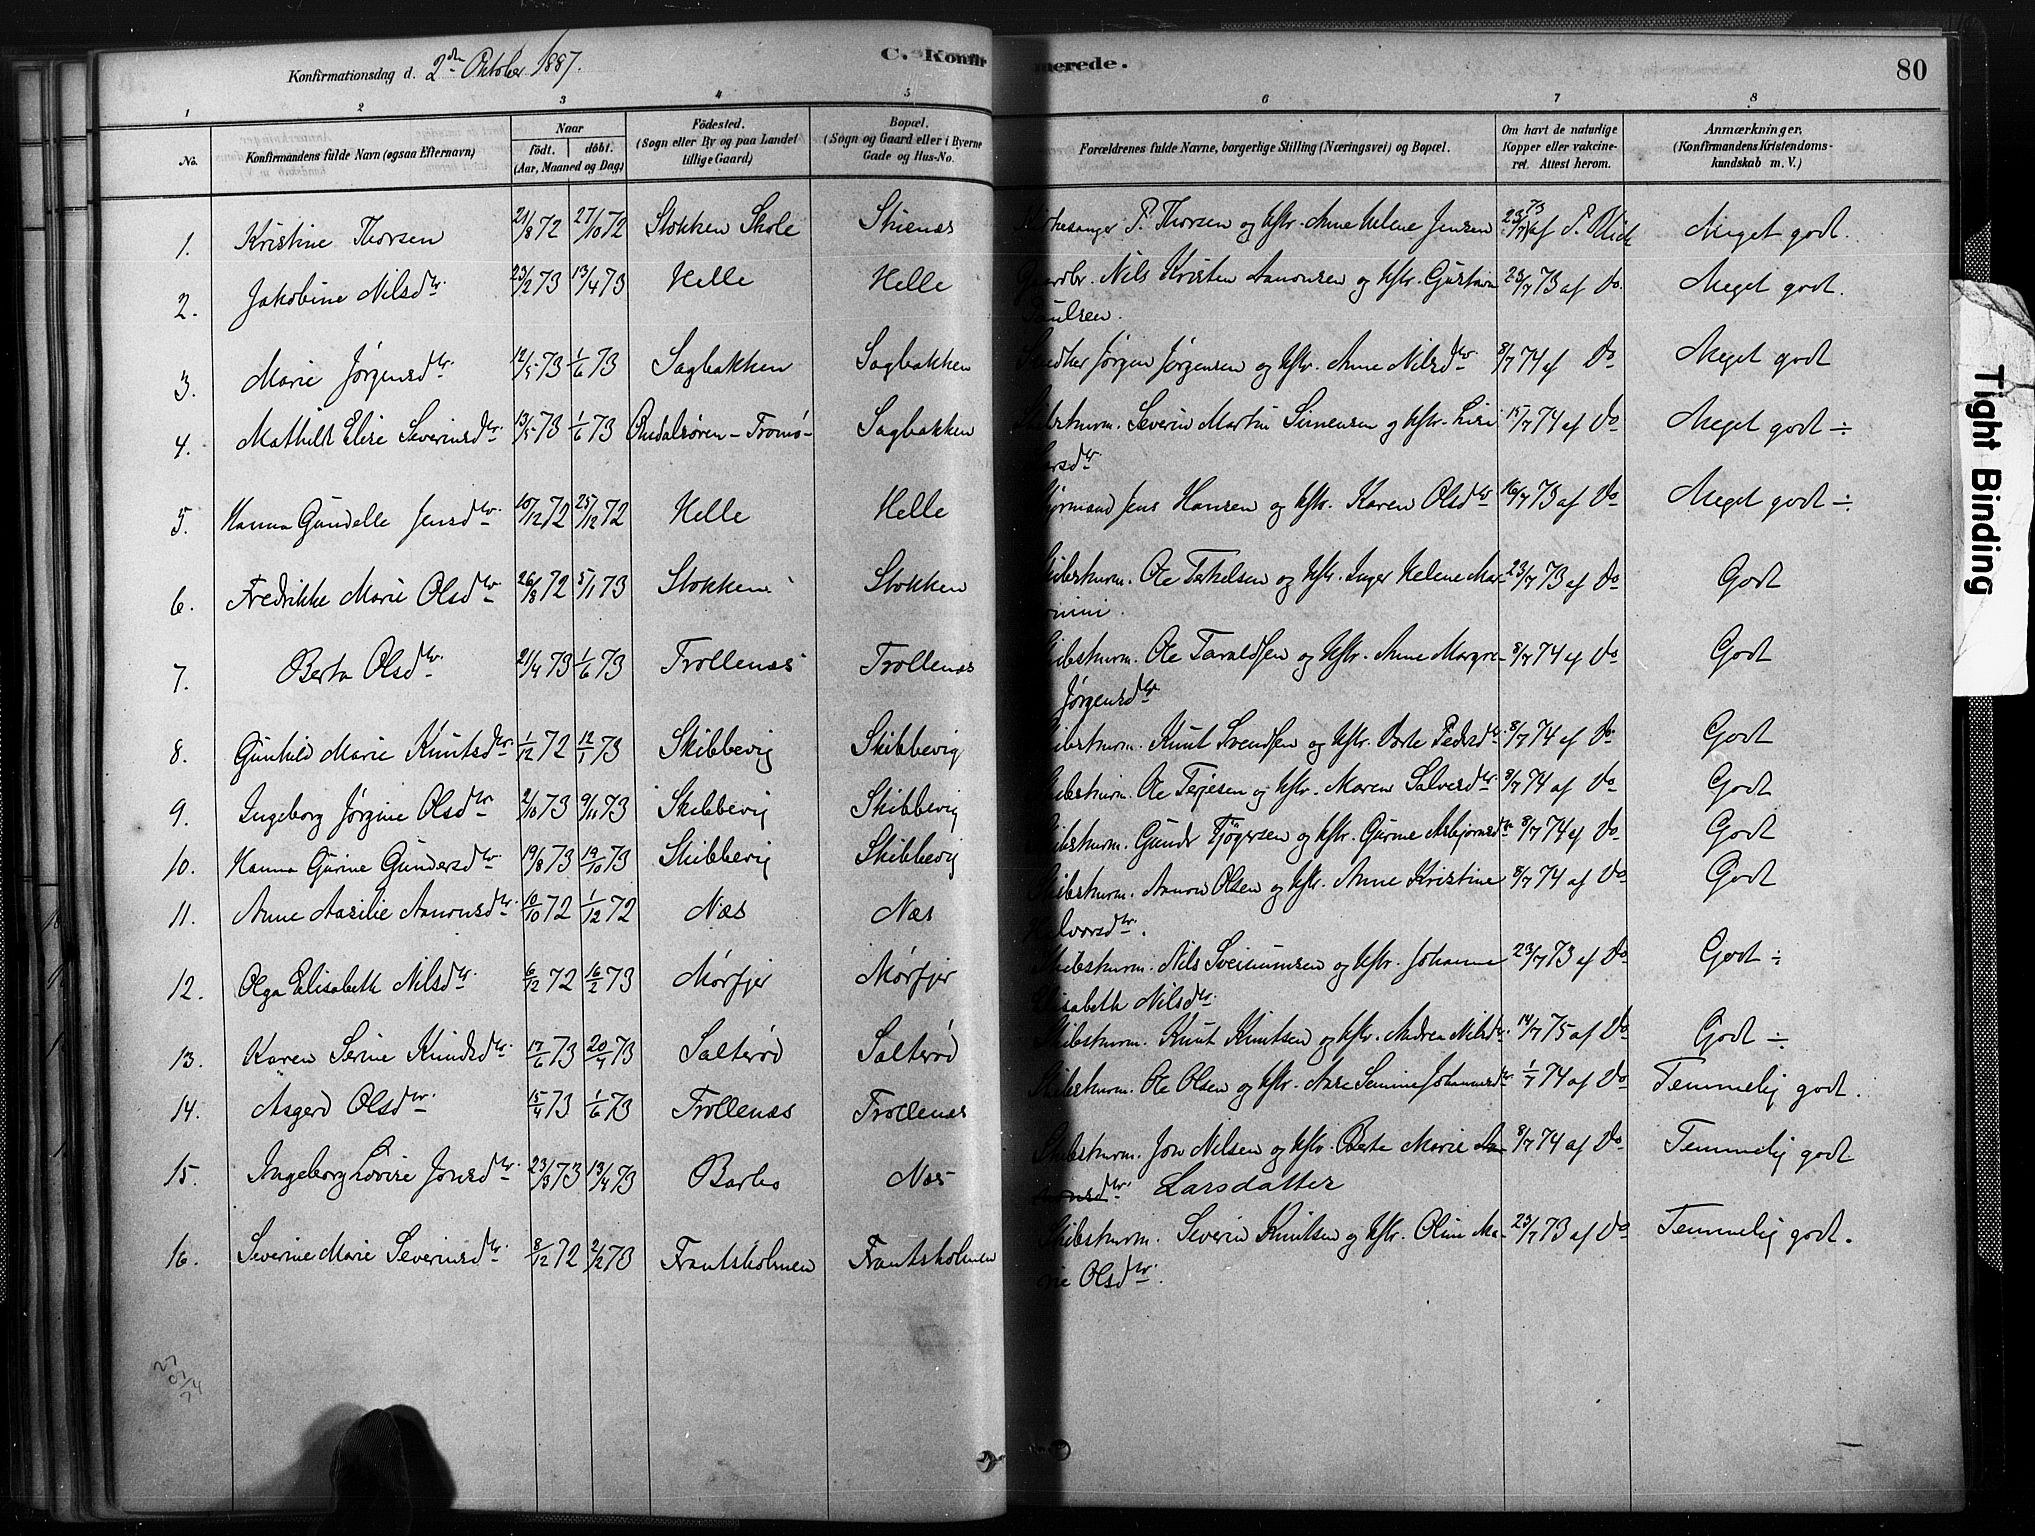 Konfirmationsdag d. 2den Oktober 1887.
C. Konfirmerede.
80
1 2 3 4 5 6 7 8
No. Konfirmandens fulde Navn (ogsaa Efternavn) Naar født. døbt. (Aar, Maaned og Dag) Födested. (Sogn eller By og paa Landet tillige Gaard) Bopæl. (Sogn og Gaard eller i Byerne Gade og Hus-No. Forældrenes fulde Navne, borgerlige Stilling (Næringsvei) og Bopæl. Om havt de naturlige Kopper eller vakcineret. Attest herom. Anmærkninger. (Konfirmandens Kristendomskundskab m. V.)
1. Kristine Thorsen 21/8 72 27/10 72 Stokken Skole Skienæs Kirkesanger P. Thorsen og Hstr. Anne Helene Jensen 23/7 73 af P. Meget godt.
2. Jakobine Nilsdtr. 23/2 73 13/4 73 Helle Helle Gaardbr. Nils Kristen Aanonsen og Hstr. Gustava 23/7 73 af Do Meget godt.
Paulsen.
3. Marie Jørgensdtr. 12/5 73 1/6 73 Sagbakken Sagbakken Snedker Jørgen Jørgensen og Hstr. Anne Nilsdtr 8/7 74 af Do Meget godt
4. Mathilde Elise Severinsdtr. 13/5 73 1/6 73 Sagbakken Skibsturm. Severin Martin Simensen og Hstr. Lise 15/7 74 af Do Meget godt ÷
Larsdtr
5. Hanna Gundelle Jensdtr. 10/12 72 25/12 72 Helle Helle Styrmand Jens Hansen og Hstr. Karen Olsdtr 16/7 73 af Do Meget godt ÷
6. Fredrikke Marie Olsdtr 26/8 72 5/1 73 Stokken Stokken Skibsturm. Ole Terkelsen og Hstr. Inger Helene 23/7 73 af Do Godt
7. Berta Olsdtr. 21/4 73 1/6 73 Trollenæs Trollenæs Skibsturm. Ole Taraldsen og Hstr. Anne Margre- 8/7 74 af Do Godt
Jørgensdtr
8. Gunhild Marie Knutsdtr. 1/12 72 12/1 73 Skibbevig Skibbevig Skibsturm. Knut Svendsen og Hstr. Dorte Pedersdtr 8/7 74 af Do Godt
9. Ingeborg Jørgine Olsdtr 2/10 73 9/11 73 Skibbevig Skibbevig Skibsturm. Ole Terjesen og Hstr. Maren Salvesdtr. 8/7 74 af Do Godt
10. Hanna Gurine Gundersdtr. 19/8 73 19/10 73 Skibbevig Skibbevig Skibsturm. Gunder Tjøgersen og Hstr. Gurine Asbjørnsdtr 8/7 74 af Do Godt
11. Anne Aasilie Aanonsdtr. 10/10 72 1/12 72 Næs Næs Skibsturm. Aanon Olsen og Hstr. Anne Kristine 8/7 74 af Do Godt
Halvorsdtr.
12. Olga Elisabeth Nilsdtr. 6/12 72 16/2 73 Mørfjer Mørfjer Skibsturm. Nils Sveinumsen og Hstr. Johanne 23/7 73 af Do Godt ÷
Elisabeth Nilsdtr.
13. Karen Serine Knudsdtr. 17/6 73 20/7 73 Salterød Salterød Skibsturm. Knut Knutsen og Hstr. Andrea Nilsdtr. 14/7 75 af Do Godt ÷
14. Asgerd Olsdtr. 15/4 73 1/6 73 Trollenæs Trollenæs Skibsturm. Ole Olsen og Hstr. Aase Semine Johannesdtr 1/7 74 af Do Temmelig godt.
15. Ingeborg Lovise Jonsdtr. 23/3 73 13/4 73 Barbo Næs Skibsturm. Jon Nilsen og Hstr. Berte Marie Aa- 8/7 74 af Do Temmelig godt
nonsdtr. Larsdatter
16. Severine Marie Severinsdtr. 8/12 72 2/2 73 Frantsholmen Frantsholmen Skibsturm. Severin Knutsen og Hstr. Oline Ma- 23/7 73 af Do Temmelig godt.
rie Olsdtr.
Tight Binding